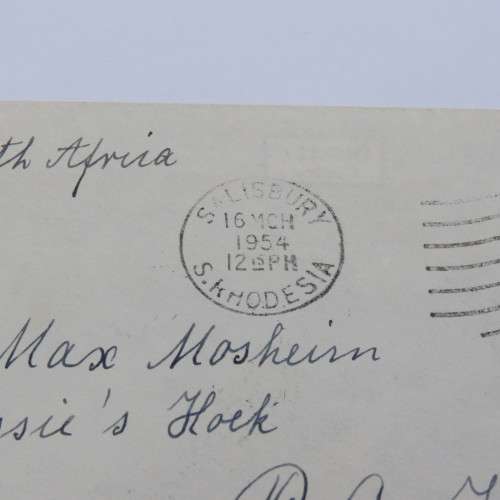 th Africa
SALISBURY
16 MCH
1954
12 PM
S. RHODESIA
Max Mosheim
sie's Hoek